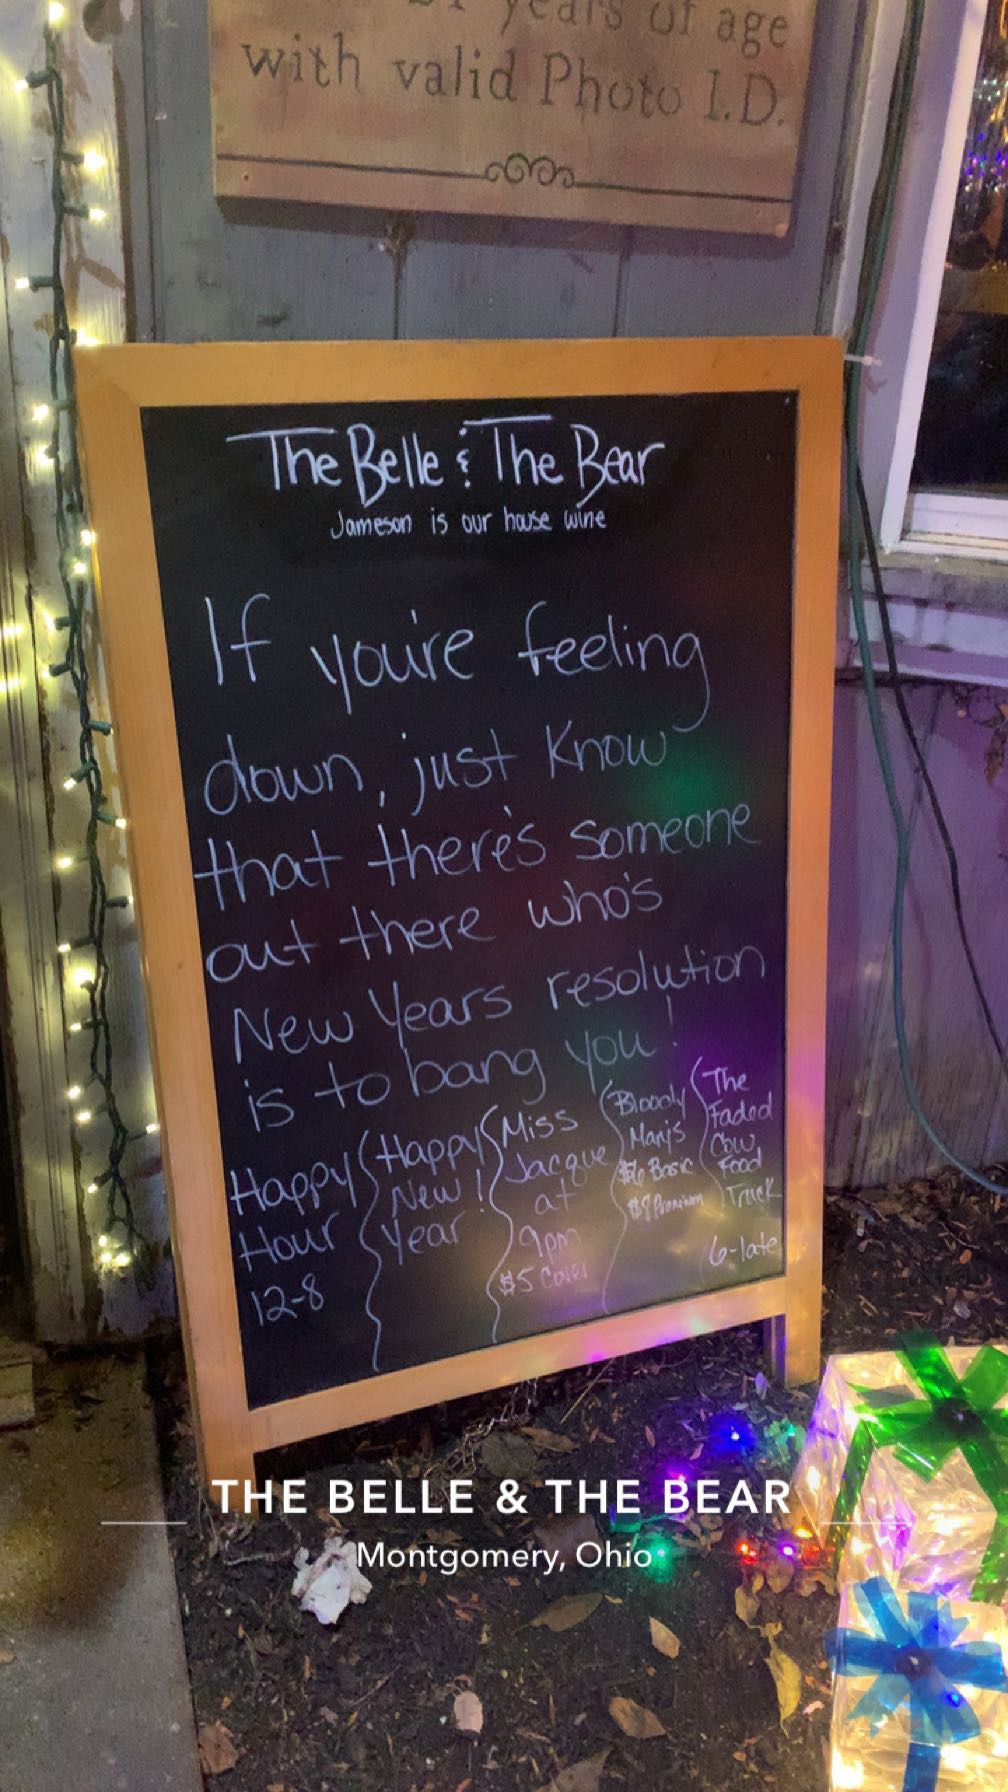 21 years of age
with valid Photo I.D.
The Belle & The Bear
Jameson is our house wine
If you're feeling
down, just know
that there's someone
out there who's
New Years resolution
is to bang you!
Happy
Hour
12-8
Happy
New !
Year
Miss
Jacque
at
9pm
$5 Cover
Bloody
Mary's
$6 Basic
$8 Premium
The
Faded
Cow
Food
Truck
6-late
THE BELLE & THE BEAR
Montgomery, Ohio